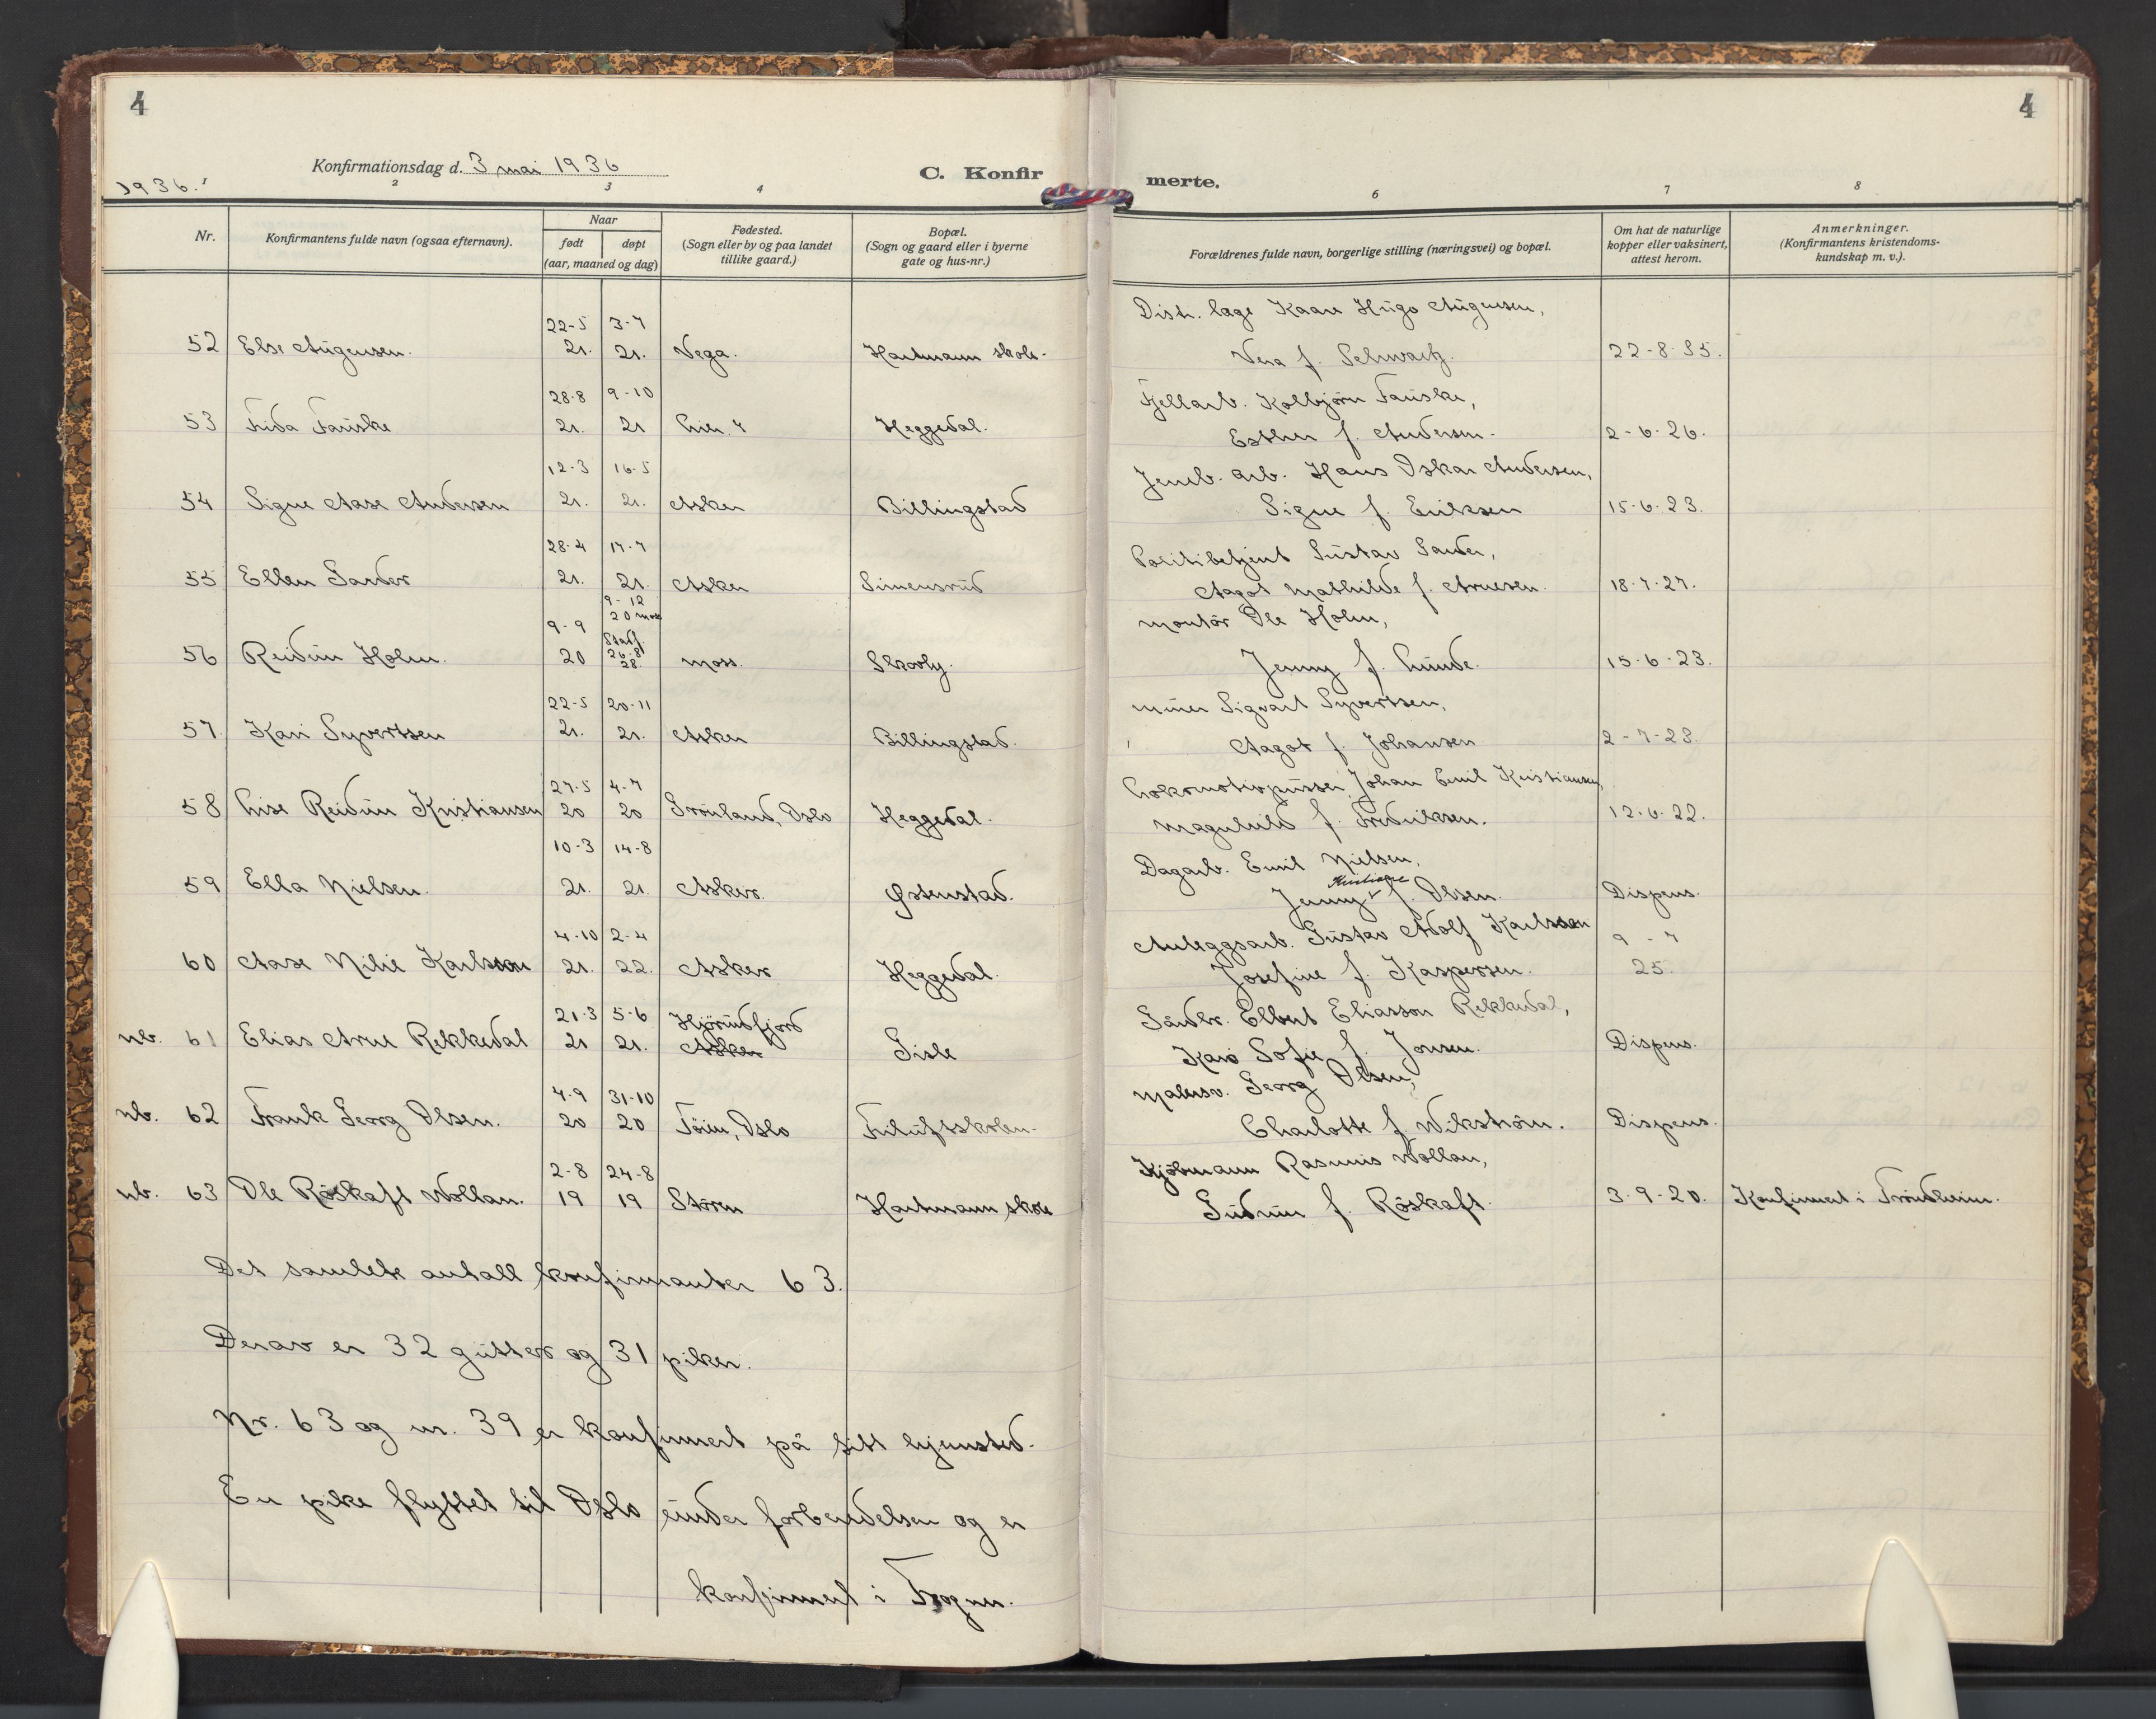 4
4
Konfirmationsdag d. 3 mai 1936
C. Konfir
merte.
1936.
1
2
3
4
6
7
8
Nr.
Konfirmantens fulde navn (ogsaa efternavn).
Naar
født
døpt
(aar, maaned og dag)
Fødested.
(Sogn eller by og paa landet
tillike gaard.)
Bopæl.
(Sogn og gaard eller i byerne
gate og hus-nr.)
Forældrenes fulde navn, borgerlige stilling (næringsvei) og bopæl.
Om hat de naturlige
kopper eller vaksinert,
attest herom.
Anmerkninger.
(Konfirmantens kristendoms-
kundskap m. v.).
22-5 3-7 Distr. læge Kaare Hugo Augensen,
52 Else Augensen. 21. 21. Vega. Hartmann skole. Vera f. Schwartz. 22-8-35.
28-8 9-10 Fjellarb. Kolbjørn Fauske,
53 Frida Fauske 21. 21 Heggedal. Esther f. Andersen. 2-6-26.
12-3 16-5 Jernb. arb. Hans Oskar Andersen,
54 Signe Aase Andersen 21. 21. Asker Billingstad Signe f. Eriksen 15-6-23.
28-4 17-7 Politibetjent Gustav Sander,
55 Ellen Sander 21. 21. Asker Simensrud Aagot Mathilde f. Arnesen. 18-7-27.
9-9 9-12 20 moss Stadf. montør Ole Holm,
56 Reidun Holm. 20 26-8 28. moss. Skovly. Jenny f. Lunde. 15-6-23.
22-5 20-11 murer Sigvart Syvertsen,
57. Kari Syvertsen 21. 21. Asker Billingstad. Aagot f. Johansen 2-7-23.
27-5 4-7 Lokomotivpusser Johan Emil Kristiansen
58 Lise Reidun Kristiansen 20 20 Grønland, Oslo Heggedal. Magnhild f. Fredriksen. 12-6-22.
10-3 14-8 Dagarb. Emil Nielsen,
59 Ella Nielsen. 21. 21. Asker. Østenstad. Jenny Kristiane f. Olsen. Dispens.
4-10 2-4 Anleggsarb. Gustav Adolf Karlsson 9-7
60 Aase Lilie Karlsson 21. 22. Asker Heggedal. Josefine f. Kaspersen. 25.
21-3 5-6 Hjørundfjord Gårdbr. Elbert Eliasson Rekkedal,
nb. 61 Elias Arne Rekkedal 21 21. Asker Gisle Kari Sofie f. Jonsen. Dispens.
4-9 31-10 Malersv. Georg Olsen,
nb. 62 Frank Georg Olsen. 20 20 Tøien, Oslo Friluftsskolen. Charlotte f. Wikstrøm. Dispens.
2-8 24-8 Kjøbmann Rasmus Wollan,
nb. 63 Ole Røskaft Wollan. 19 19 Støren Hartmann skole Gudrun f. Røskaft. 3-9-20. Konfirmert i Trondheim.
Det samlede antall konfirmanter 63.
Derav er 32 gutter og 31 piker.
Nr. 63 og nr. 39 er konfirmert på sitt hjemsted.
En pike flyttet til Oslo under forberedelsen og er
konfirmert i Frogner.